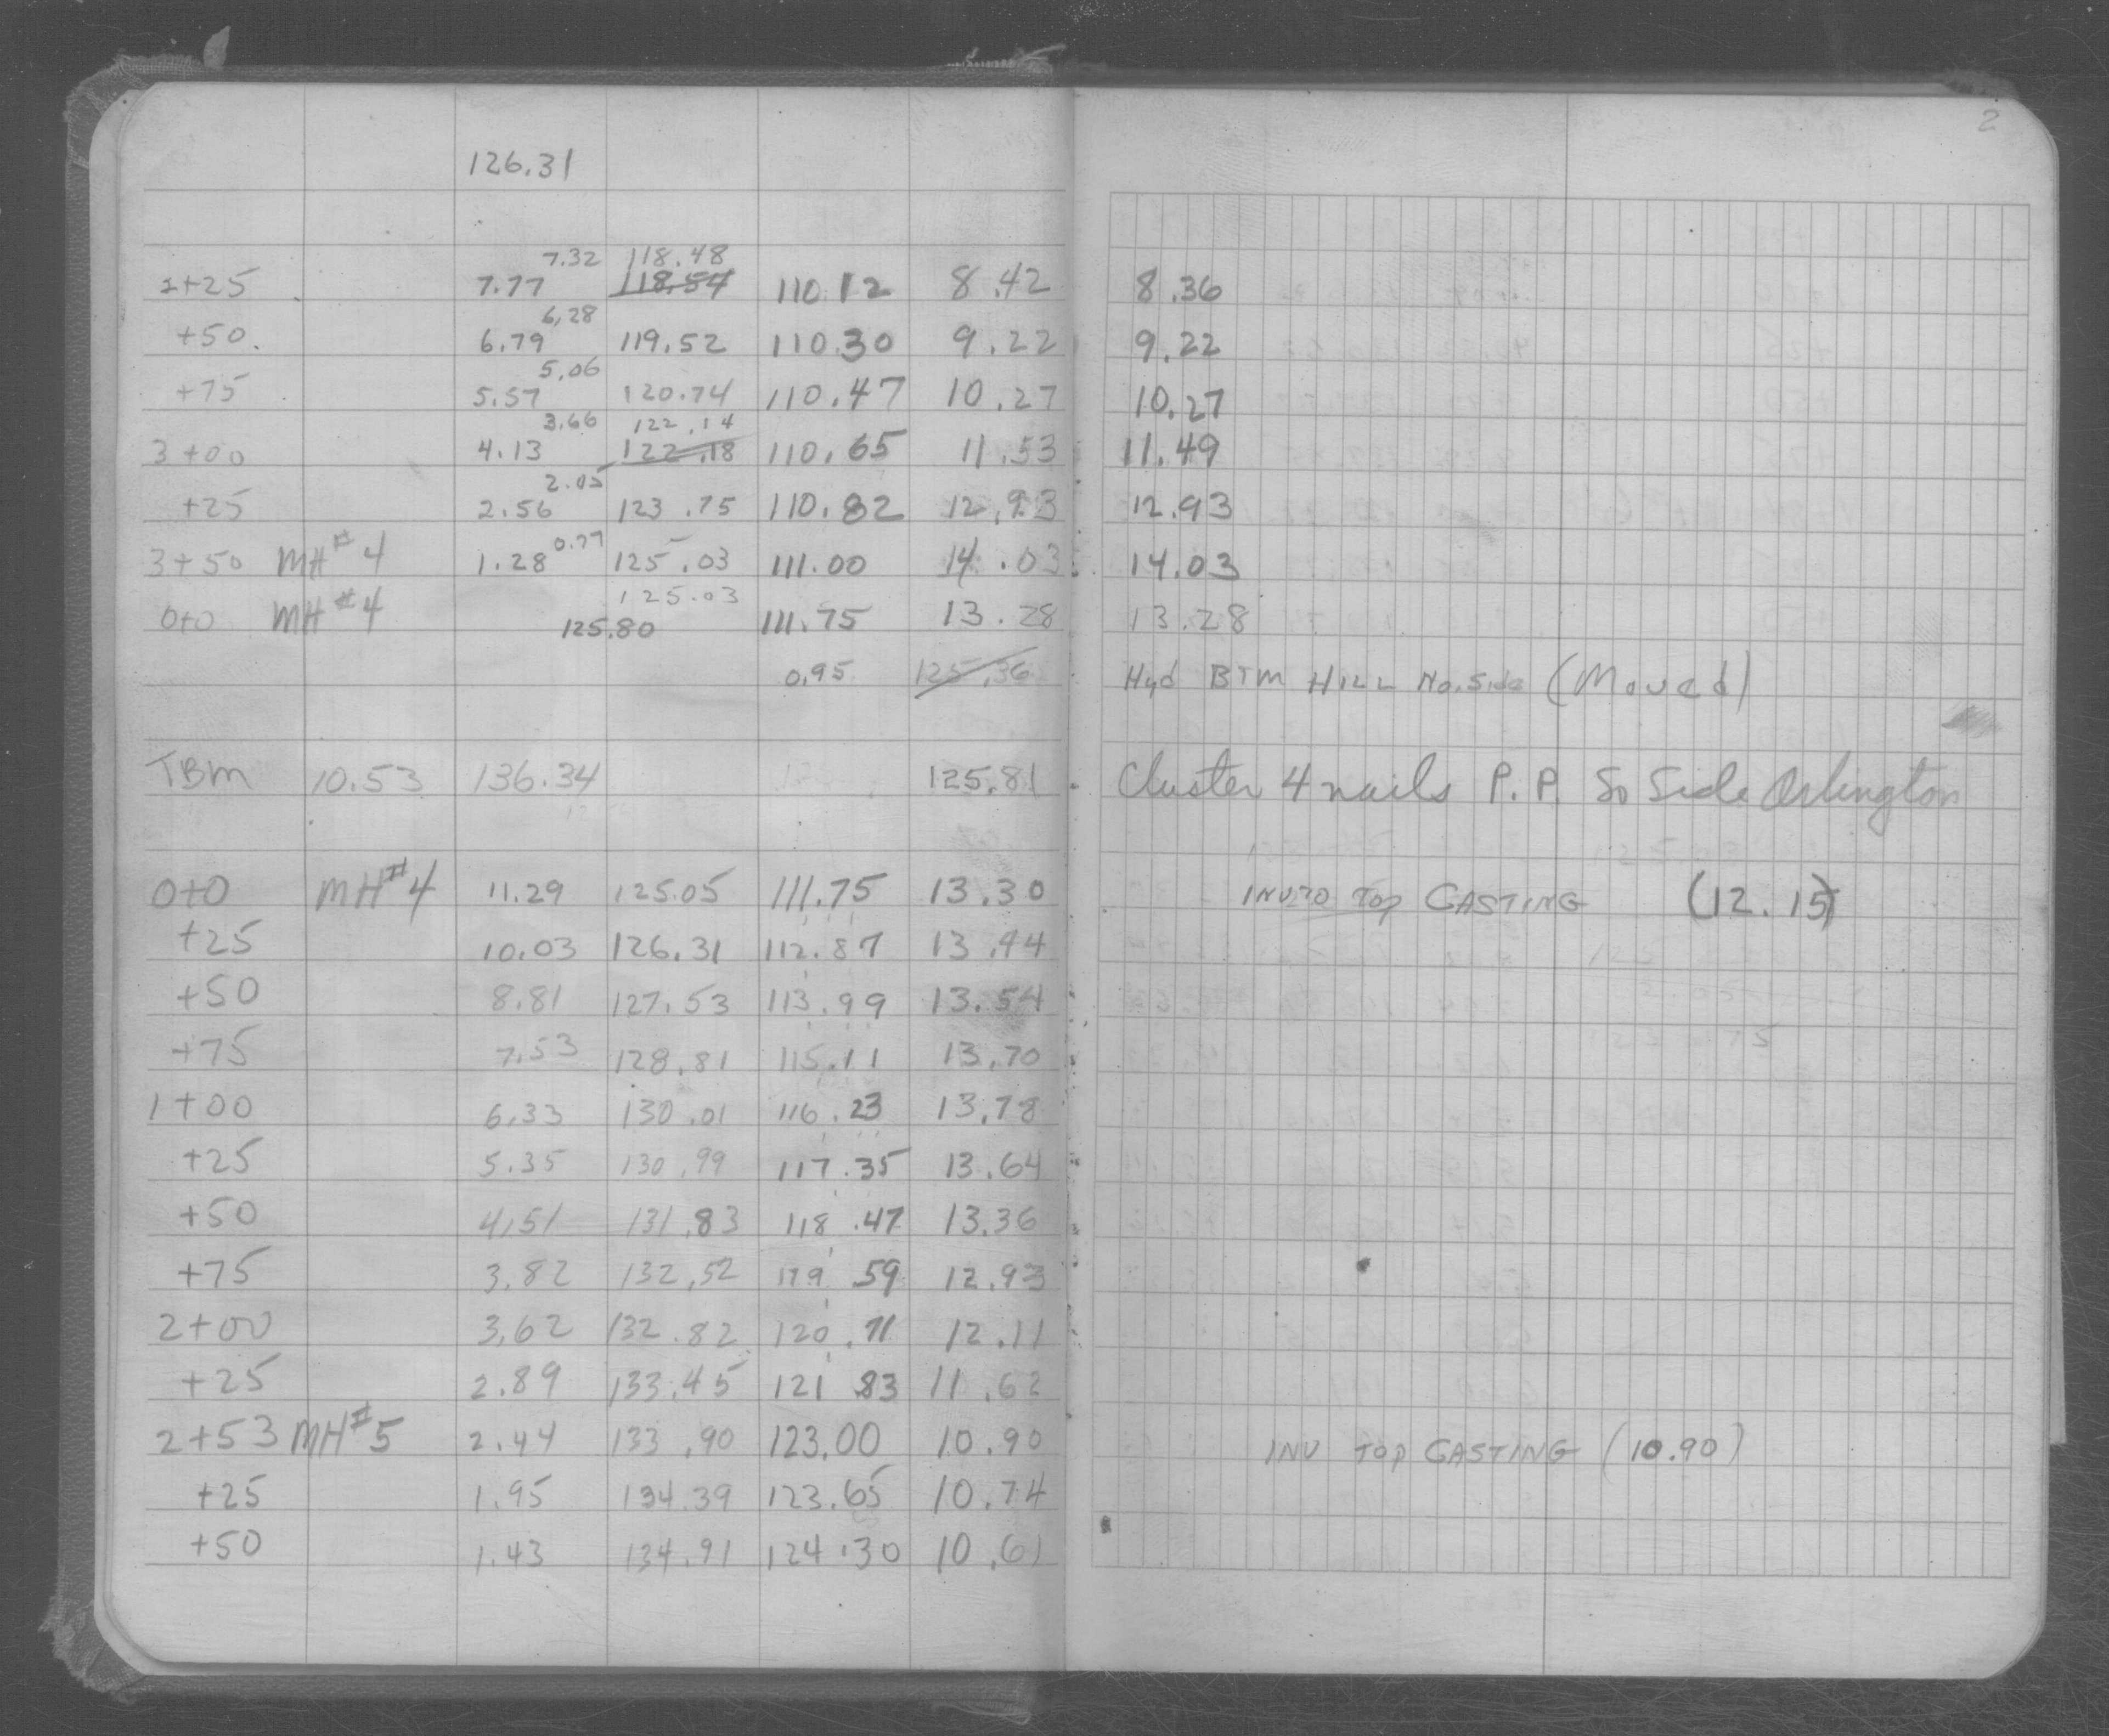 2
126.31
7.32 118.48
2+25 7.77 118.54 110.12 8.42 8.36
6.28
+50. 6.79 119.52 110.30 9.22 9.22
5.06
+75 5.57 120.74 110.47 10.27 10.27
3.66 122.14
3+00 4.13 122.18 110.65 11.53 11.49
2.05
+25 2.56 123.75 110.82 12.93 12.93
0.77
3+50 MH#4 1.28 125.03 111.00 14.03 14.03
125.03
0+0 MH#4 125.80 111.75 13.28 13.28
0.95 125.36 Hyd BTM HILL No. Side (Moved)
TBM 10.53 136.34 125.81 Cluster 4 nails P.P. So Side Arlington
0+0 MH#4 11.29 125.05 111.75 13.30 INV TO TOP CASTING (12.15)
+25 10.03 126.31 112.87 13.44
+50 8.81 127.53 113.99 13.54
+75 7.53 128.81 115.11 13.70
1+00 6.33 130.01 116.23 13.78
+25 5.35 130.99 117.35 13.64
+50 4.51 131.83 118.47 13.36
+75 3.82 132.52 119 59 12.93
2+00 3.62 132.82 120.71 12.11
+25 2.89 133.45 121 83 11.62
2+53 MH#5 2.44 133.90 123.00 10.90 INV TOP CASTING (10.90)
+25 1.95 134.39 123.65 10.74
+50 1.43 134.91 124.30 10.61